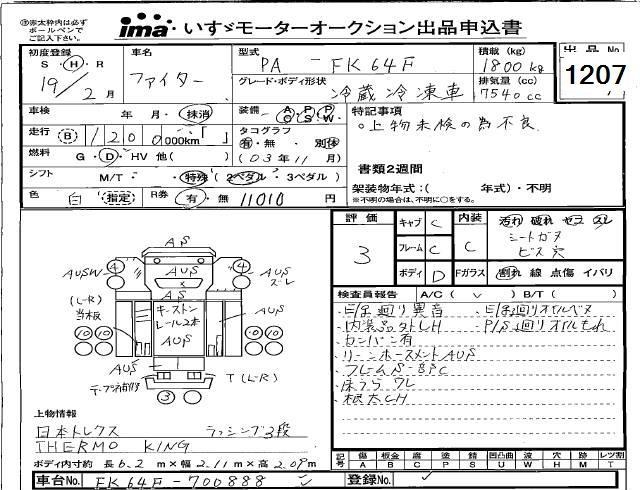 ㊟赤太枠内は必ず
ボールペンで
ご記入下さい。
ima いすゞモーターオークション出品申込書
初度登録 車名 型式 積載(kg) 出品No
S・H・R ファイター PA - FK64F 1800kg 1207
19/2月 グレード・ボディ形状 冷蔵冷凍車 排気量(cc) 7540cc
車検 年 月・抹消 装備 A/C P/S P/W 特記事項
走行 (B) 120,000km タコグラフ 有・無 別体 ○上物未検の為不良
燃料 G・D・HV 他( ) (03年11月) 書類2週間
シフト M/T・ 特殊(2ペダル・3ペダル) 架装物年式:( 年式)・不明
※不明の場合は、不明に○をする。
色 白 指定 R券 有・無 11010円
評価 3
キャブ C 内装 C 汚れ 破れ コゲ スレ
フレーム C シートガタ
ビス穴
ボディ D Fガラス 割れ 線 点傷 イバリ
検査員報告 A/C( ∨ ) B/T( )
・内装
・カンバン有
・リーンホースメントAUS
・フレームS-BPC
・床うら ワレ
・根太CH
AS
4 AUS 4
AUSW AUS
スレ
AS
(L-R)
当板
キーストン
レール2本
AUS
AUS
10 10 10 10
AUS
T (L-R)
3
上物情報
日本トレクス ラッシング3段
THERMO KING
ボディ内寸約 長6.2m×幅2.11m×高2.09m
記号 傷 A 板金 B 腐 C 塗 P 錆 S 凹凸曲 U 波 W 穴 H 交 X 歪 M レツ割 T
車台No. FK64F-700888 登録No.